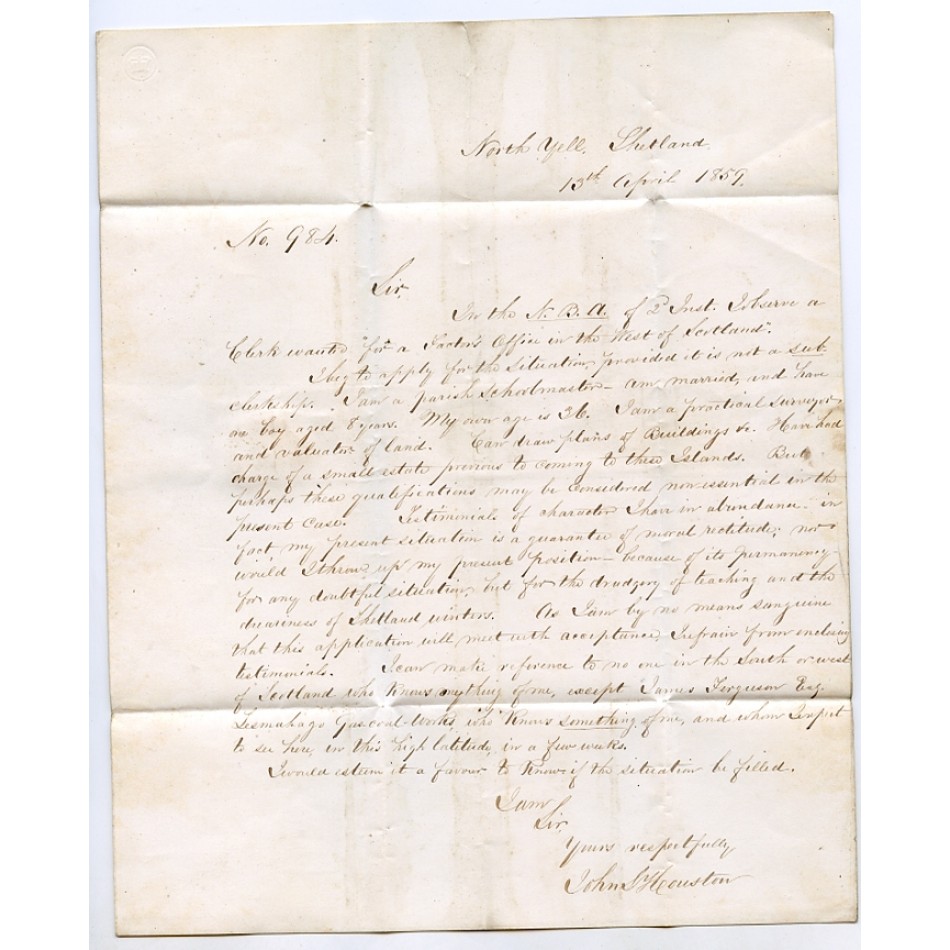 North Yell. Shetland.
13th April 1859.
No. 984.
Sir,
In the N. B. A. of 2d Inst. I observe a
Clerk wanted "for a Factor's Office in the West of Scotland".
I beg to apply for the Situation, provided it is not a sub-
clerkship. I am a parish Schoolmaster – am married, and have
one boy aged 8 years. My own age is 36. I am a practical surveyor
and valuator of land. Can draw plans of Buildings &c. Have had
charge of a small estate previous to coming to these Islands. But
perhaps these qualifications may be considered non-essential in the
present case. Testimonials of character I have in abundance – in
fact, my present situation is a guarantee of moral rectitude; nor
would I throw up my present position – because of its permanency
for any doubtful situation, but for the drudgery of teaching and the
dreariness of Shetland winters. As I am by no means sanguine
that this application will meet with acceptance, I refrain from enclosing
testimonials. I can make reference to no one in the South or west
of Scotland who Knows anything of me, except James Ferguson Esq.
Lesmahago Gas coal works, who Knows something of me, and whom I expect
to see here, in this high latitude, in a few weeks.
I would esteem it a favour to Know if the situation be filled.
I am
Sir,
Yours respectfully,
John S Houston